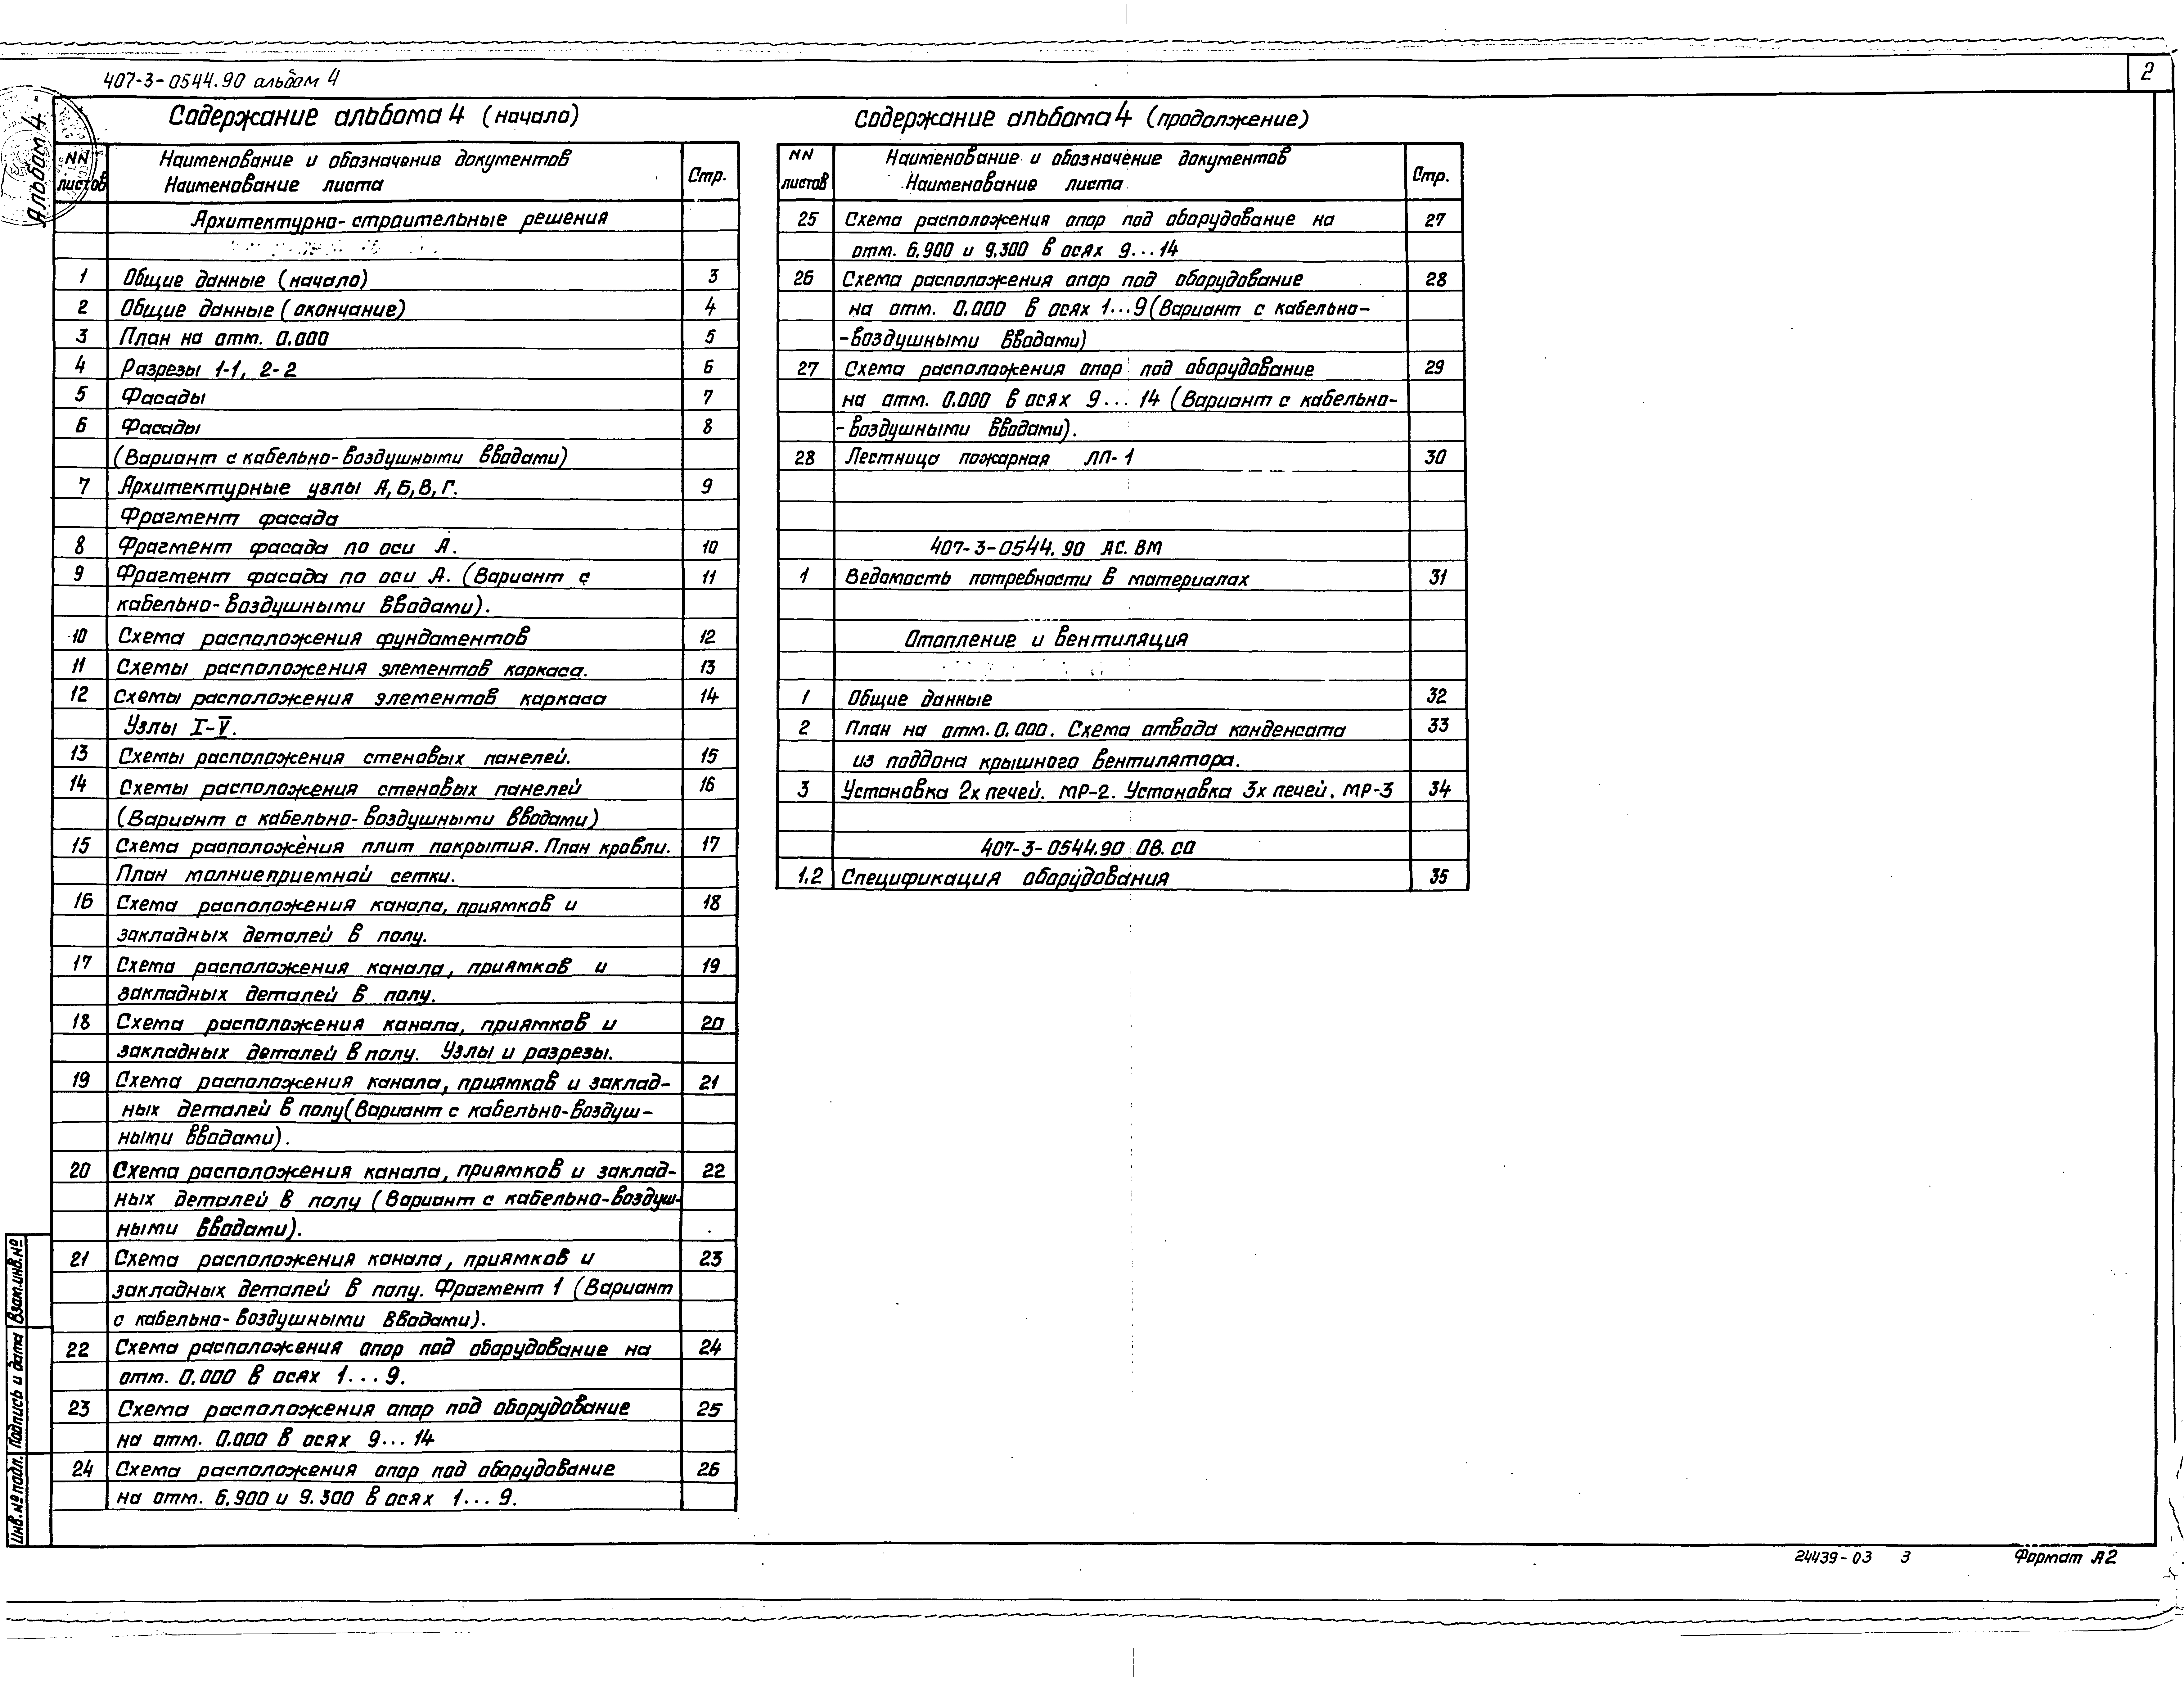 2
407-3-0544.90 альбом 4
Альбом 4
Содержание альбома 4 (начало)
NN листов
Наименование и обозначение документов
Наименование листа
Стр.
Архитектурно-строительные решения
1 Общие данные (начало) 3
2 Общие данные (окончание) 4
3 План на отм. 0.000 5
4 Разрезы 1-1, 2-2 6
5 Фасады 7
6 Фасады 8
(Вариант с кабельно-воздушными вводами)
7 Архитектурные узлы А,Б,В,Г. 9
Фрагмент фасада
8 Фрагмент фасада по оси А. 10
9 Фрагмент фасада по оси А. (Вариант с 11
кабельно-воздушными вводами).
10 Схема расположения фундаментов 12
11 Схемы расположения элементов каркаса. 13
12 Схемы расположения элементов каркаса 14
Узлы I-V.
13 Схемы расположения стеновых панелей. 15
14 Схемы расположения стеновых панелей 16
(Вариант с кабельно-воздушными вводами)
15 Схема расположения плит покрытия. План кровли. 17
План молниеприемной сетки.
16 Схема расположения канала, приямков и 18
закладных деталей в полу.
17 Схема расположения канала, приямков и 19
закладных деталей в полу.
18 Схема расположения канала, приямков и 20
закладных деталей в полу. Узлы и разрезы.
19 Схема расположения канала, приямков и заклад- 21
ных деталей в полу (Вариант с кабельно-воздуш-
ными вводами).
20 Схема расположения канала, приямков и заклад- 22
ных деталей в полу (Вариант с кабельно-воздуш-
ными вводами).
21 Схема расположения канала, приямков и 23
закладных деталей в полу. Фрагмент 1 (Вариант
с кабельно-воздушными вводами).
22 Схема расположения опор под оборудование на 24
отм. 0.000 в осях 1...9.
23 Схема расположения опор под оборудование 25
на отм. 0.000 в осях 9...14
24 Схема расположения опор под оборудование 26
на отм. 6.900 и 9.300 в осях 1...9.
Содержание альбома 4 (продолжение)
NN листов
Наименование и обозначение документов
Наименование листа
Стр.
25 Схема расположения опор под оборудование на 27
отм. 6.900 и 9.300 в осях 9...14
26 Схема расположения опор под оборудование 28
на отм. 0.000 в осях 1...9 (Вариант с кабельно-
-воздушными вводами)
27 Схема расположения опор под оборудование 29
на отм. 0.000 в осях 9...14 (Вариант с кабельно-
-воздушными вводами).
28 Лестница пожарная ЛП-1 30
407-3-0544.90 АС.ВМ
1 Ведомость потребности в материалах 31
Отопление и вентиляция
1 Общие данные 32
2 План на отм. 0.000. Схема отвода конденсата 33
из поддона крышного вентилятора.
3 Установка 2х печей. МР-2. Установка 3х печей. МР-3 34
407-3-0544.90 ОВ.СО
1.2 Спецификация оборудования 35
Взам.инв.№
Подпись и дата
Инв.№ подл.
24439-03 3
Формат А2